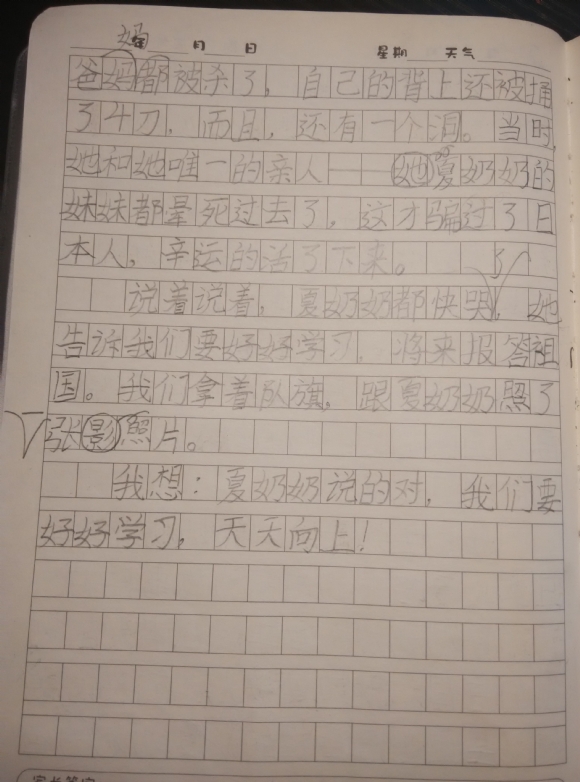 妈
年 月 日 星期 天气
爸妈都被杀了，自己的背上还被捅
了4刀，而且，还有一个泪。当时，
她和她唯一的亲人——她夏奶奶的
妹妹都晕死过去了，这才骗过了日
本人，辛运的活了下来。 了
说着说着，夏奶奶都快哭，她
告诉我们要好好学习，将来报答祖
国。我们拿着队旗，跟夏奶奶照了
张影照片。
我想：夏奶奶说的对，我们要
好好学习，天天向上！